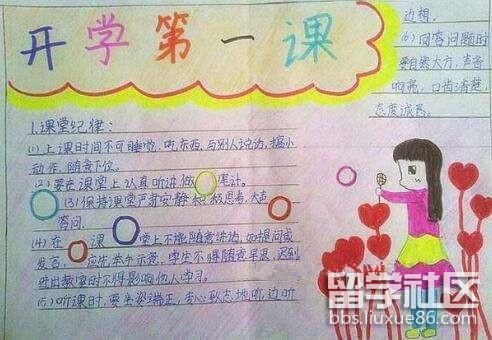 开学第一课
1.课堂纪律:
(1)上课时间不可睡觉,听东西,与别人说话,搞小
动作,随意下位。
(2)要在课堂上认真听讲,做 笔记。
(3)保持课堂严肃安静,积极思考,大声
答问。
(4)在 课 堂上不能随意讲话,如提问或
发言, 应先举手示意,学生不得随意早退,迟到
进出教室时不得影响他人学习。
(5)听课时,要坐姿端正,专心致志地听,边听
边想。
(6)回答问题时
要自然大方,声音
响亮,口齿清楚,
态度诚恳。
留学社区
bbs.liuxue86.com